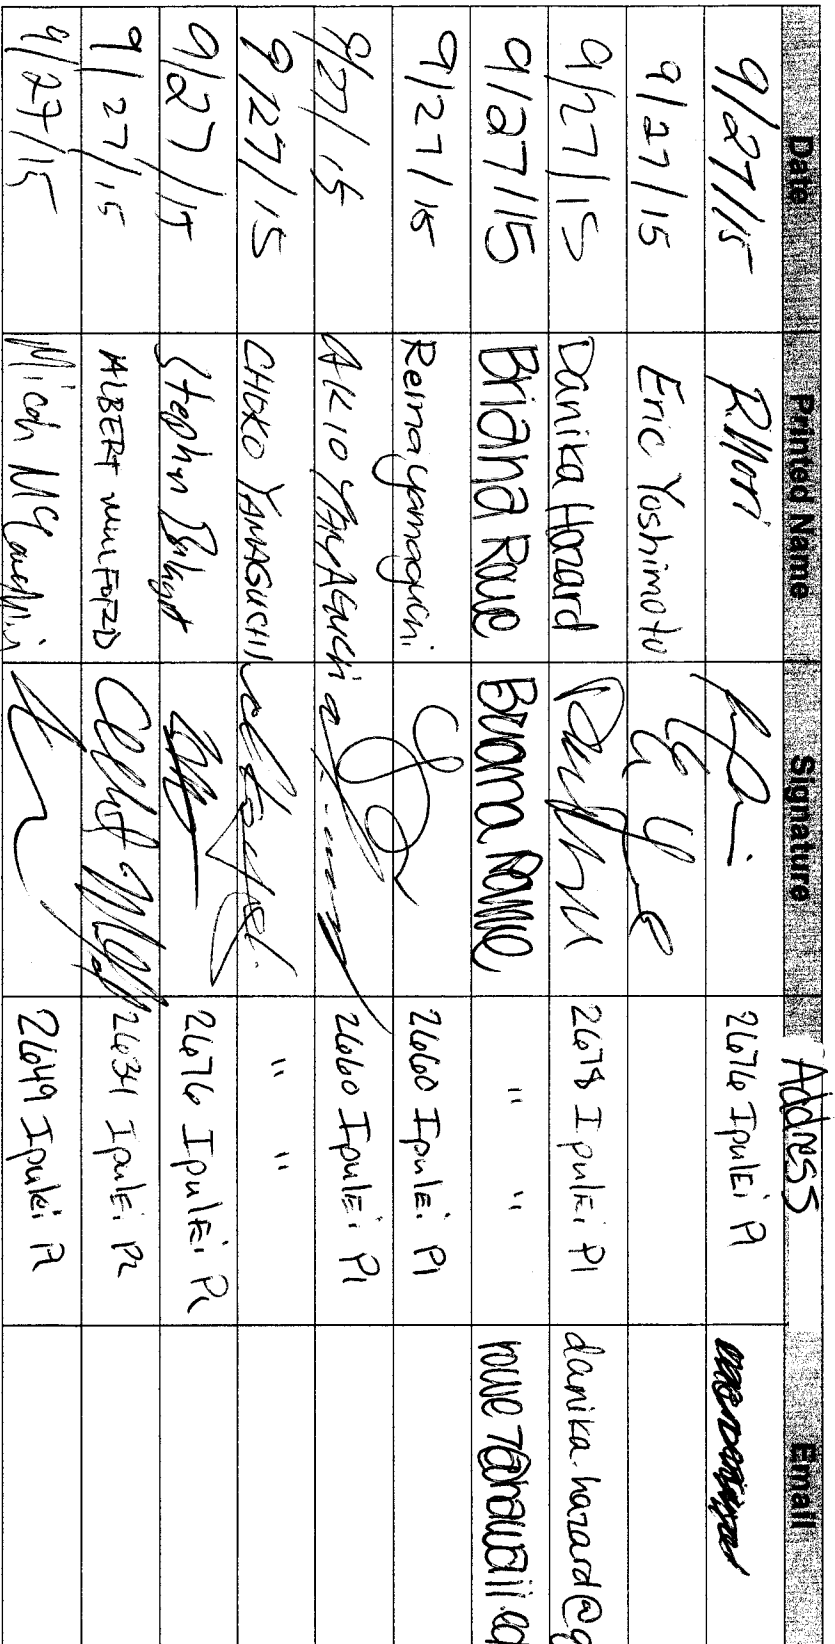 Date Printed Name Signature Address Email
9/27/15 R Mori 2676 IpulEi Pl
9/27/15 Eric Yoshimoto
9/27/15 Danika Hazard 2678 IpulEi Pl danika.hazard@g
9/27/15 Briana Rowe Briana Rowe " " rowe7@hawaii.ed
9/27/15 Reina Yamaguchi 2660 IpulEi Pl
9/27/15 AKIO YAMAGUCHI 2660 IpulEi Pl
9/27/15 CHOKO YAMAGUCHI " "
9/27/15 Stephen 2676 IpulEi Pl
9/27/15 ALBERT 2634 IpulEi Pl
9/27/15 Micah 2649 Ipulei Pl